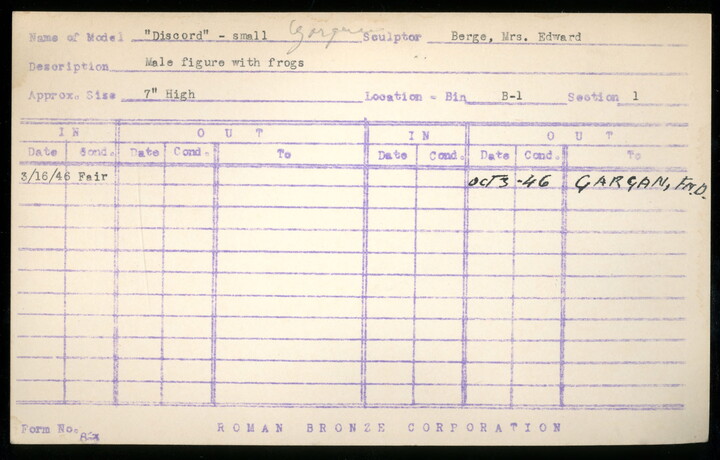 Name of Model "Discord" - small Gargan Sculptor Berge, Mrs. Edward
Description Male figure with frogs
Approx. Size 7" High Location - Bin B-1 Section 1
IN OUT IN OUT
Date Cond. Date Cond. To Date Cond. Date Cond. To
3/16/46 Fair OCT 3 -46 GARGAN, FN.D.
Form No. ROMAN BRONZE CORPORATION